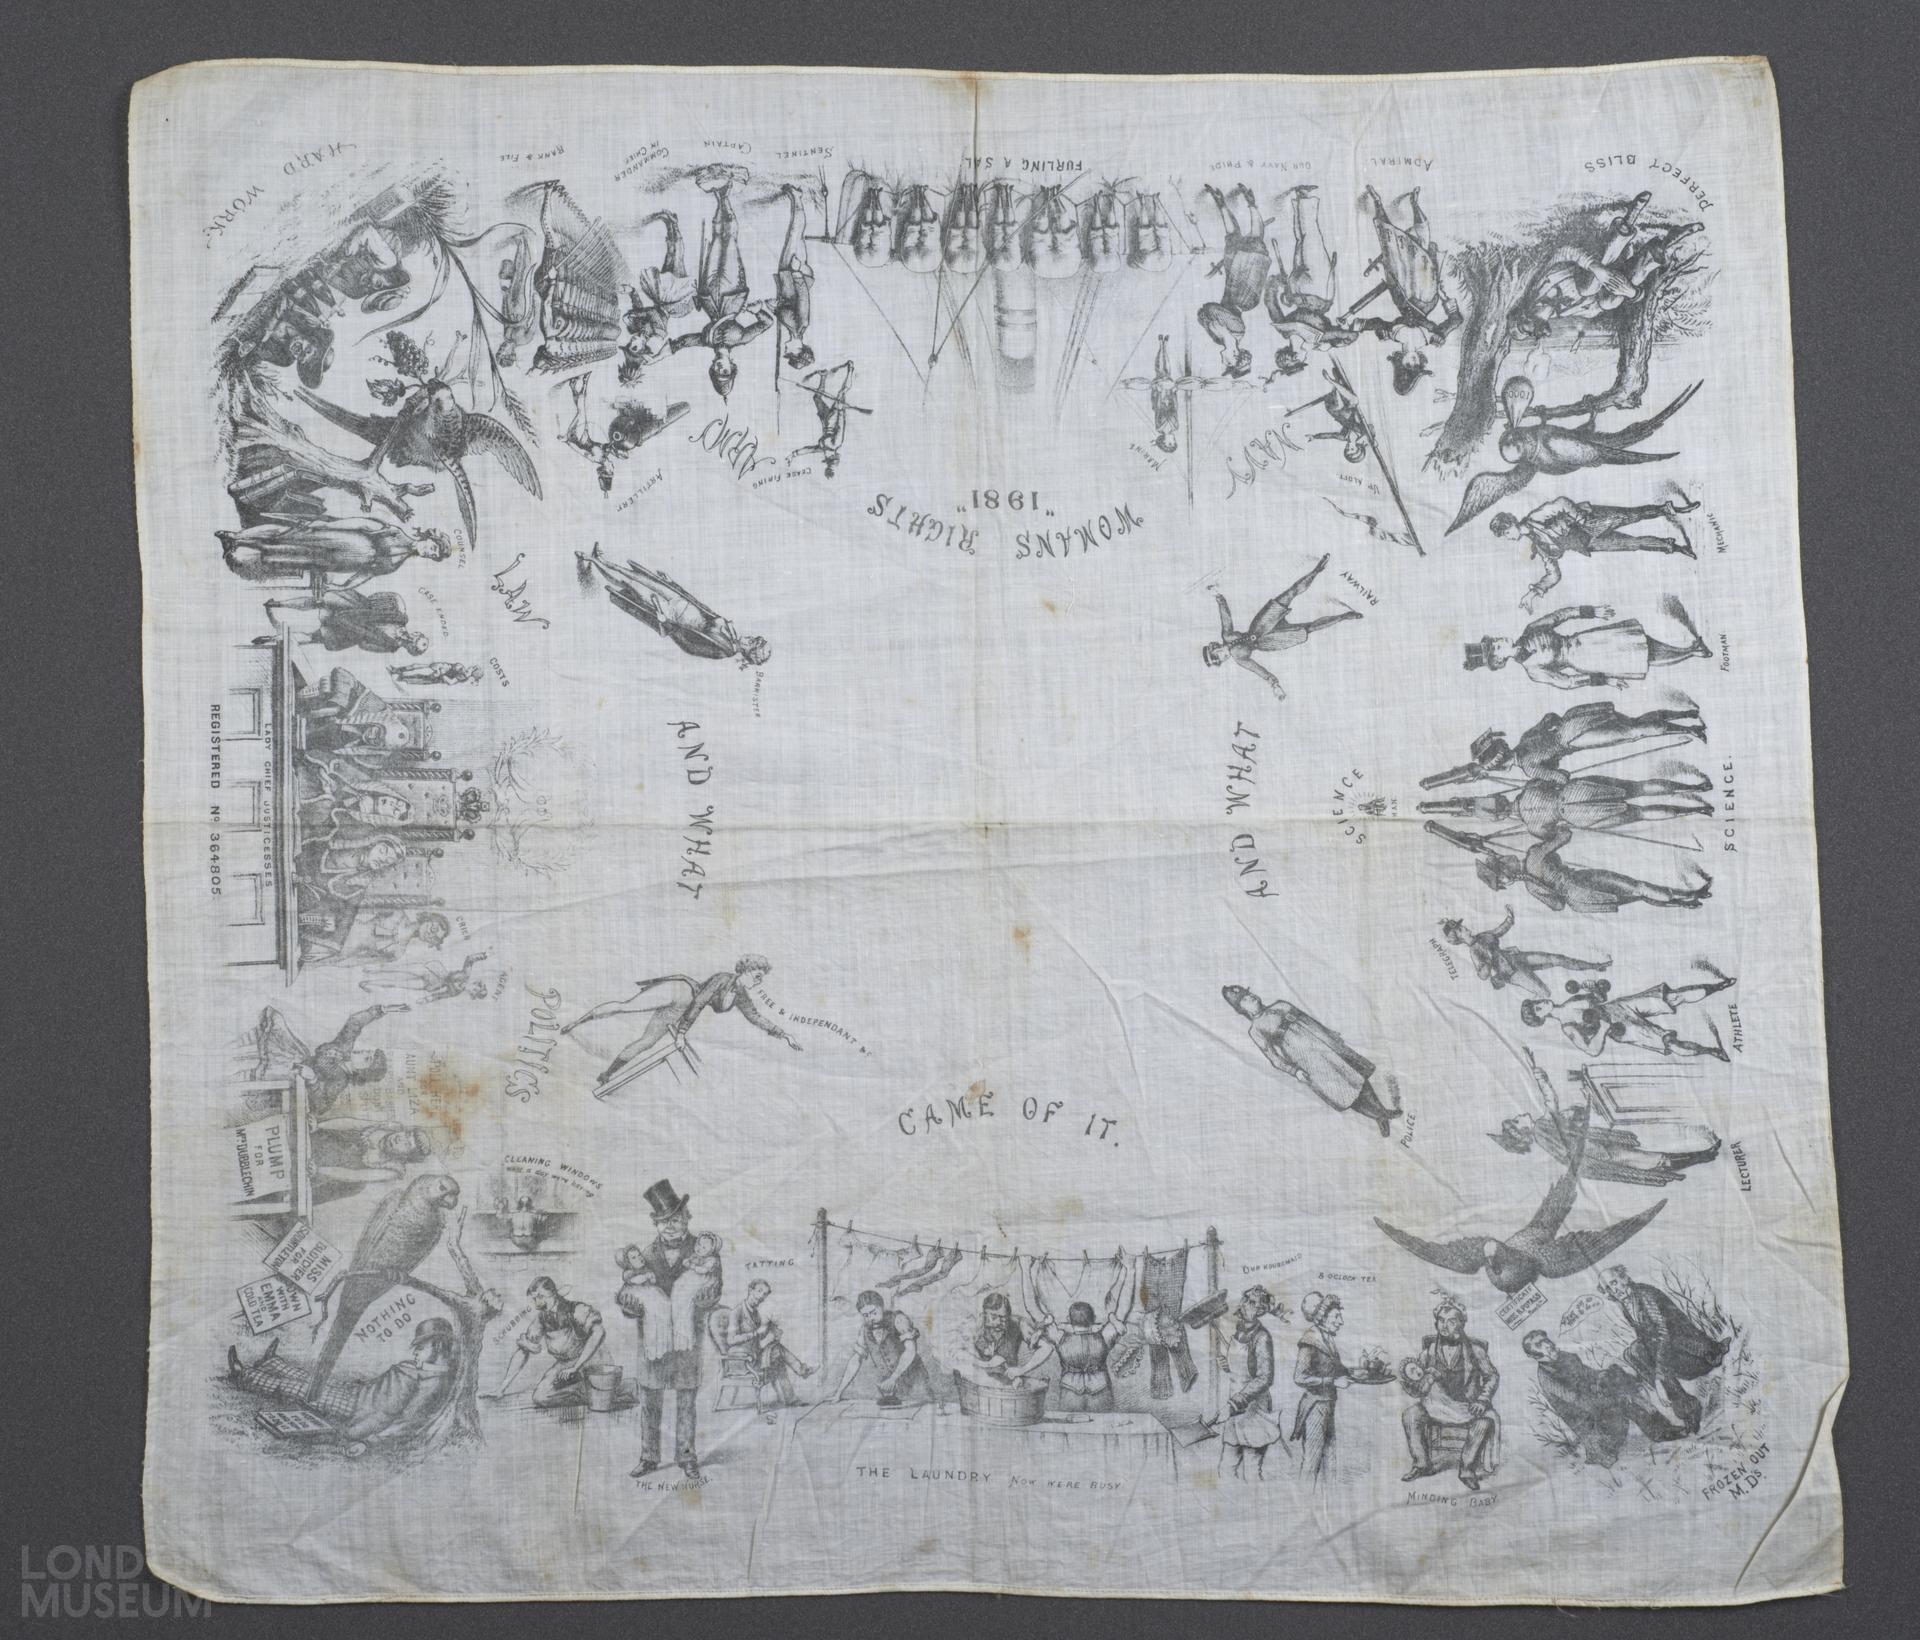 WOMANS RIGHTS
"1981"
AND WHAT
AND WHAT
CAME OF IT.
HARD WORK
RANK & FILE
COMMANDER
IN CHIEF
CAPTAIN
SENTINEL
FURLING A SAL
OUR NAVY & PRIDE
ADMIRAL
PERFECT BLISS
ARTILLERY
ARMY
CEASE FIRING
MARINE
NAVY
UP ALOFT
1000
COUNSEL
CASE ENDED
COSTS
LAW
BARRISTER
RAILWAY
MECHANIC
FOOTMAN
SCIENCE
MAN.
SCIENCE.
TELEGRAPH
ATHLETE
LECTURER
POLICE
REGISTERED Nº 364805
LADY CHIEF JUSTICESSES
CRIER
AGENT
POLITICS
FREE & INDEPENDANT &c
AUNT LIZA
PLUMP
FOR
Mrs DUBBLECHIN
MISS
BLOTCHER
FOR
DOWN
WITH
EMMA
AND
COLD TEA
NOTHING
TO DO
CLEANING WINDOWS
SCRUBBING
THE NEW NURSE.
TATTING
THE LAUNDRY NOW WERE BUSY
OUR HOUSEMAID
5 OCLOCK TEA
MINDING BABY
CERTIFICATE
FROZEN OUT
M.Ds.
LONDON
MUSEUM